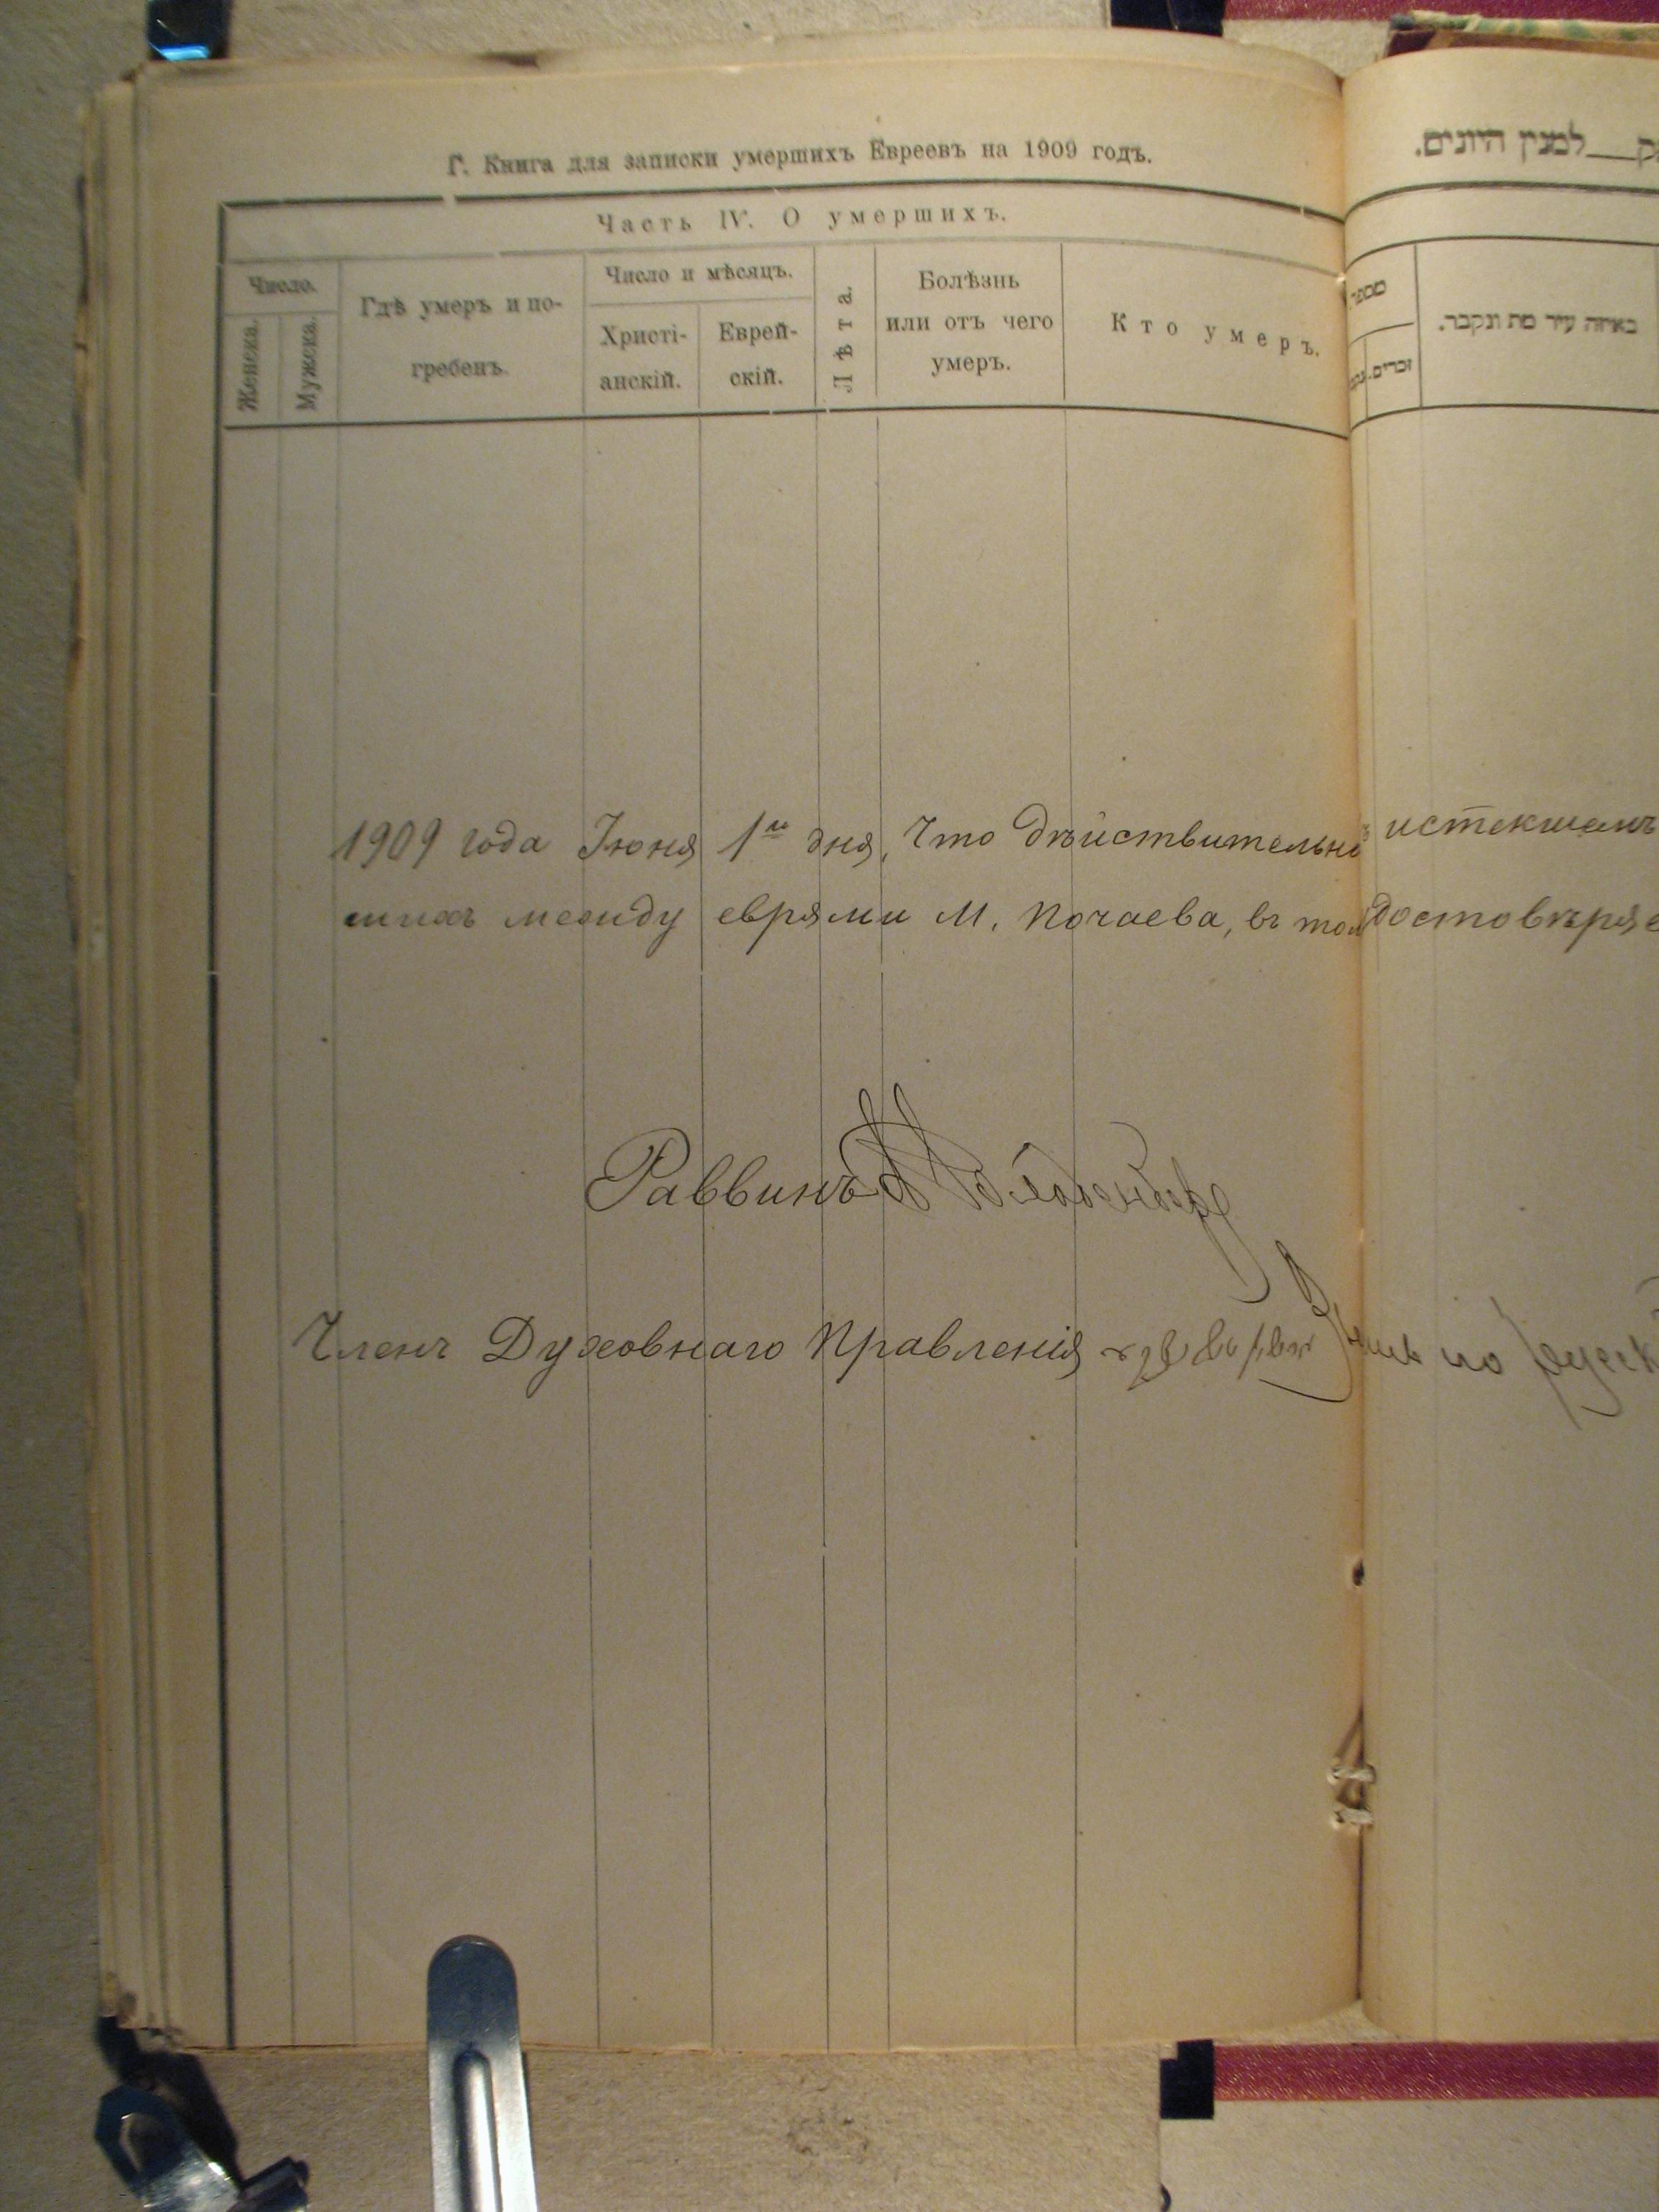 Г. Книга для записки умершихъ Евреевъ на 1909 годъ.
למנין היונים.
Часть IV. О умершихъ.
Число.
Женска.
Мужеска.
Гдѣ умеръ и по-
гребенъ.
Число и мѣсяцъ.
Христі-
анскій.
Еврей-
скій.
Лѣта.
Болѣзнь
или отъ чего
умеръ.
Кто умеръ.
מספר
זכרים.
באיזה עיר מת ונקבר.
1909 года Іюня 1го дня, Что дѣйствительно истекшемъ
шихъ между евреями М. Почаева, въ том достовѣряе
Раввинъ
Членъ Духовнаго Правленія по